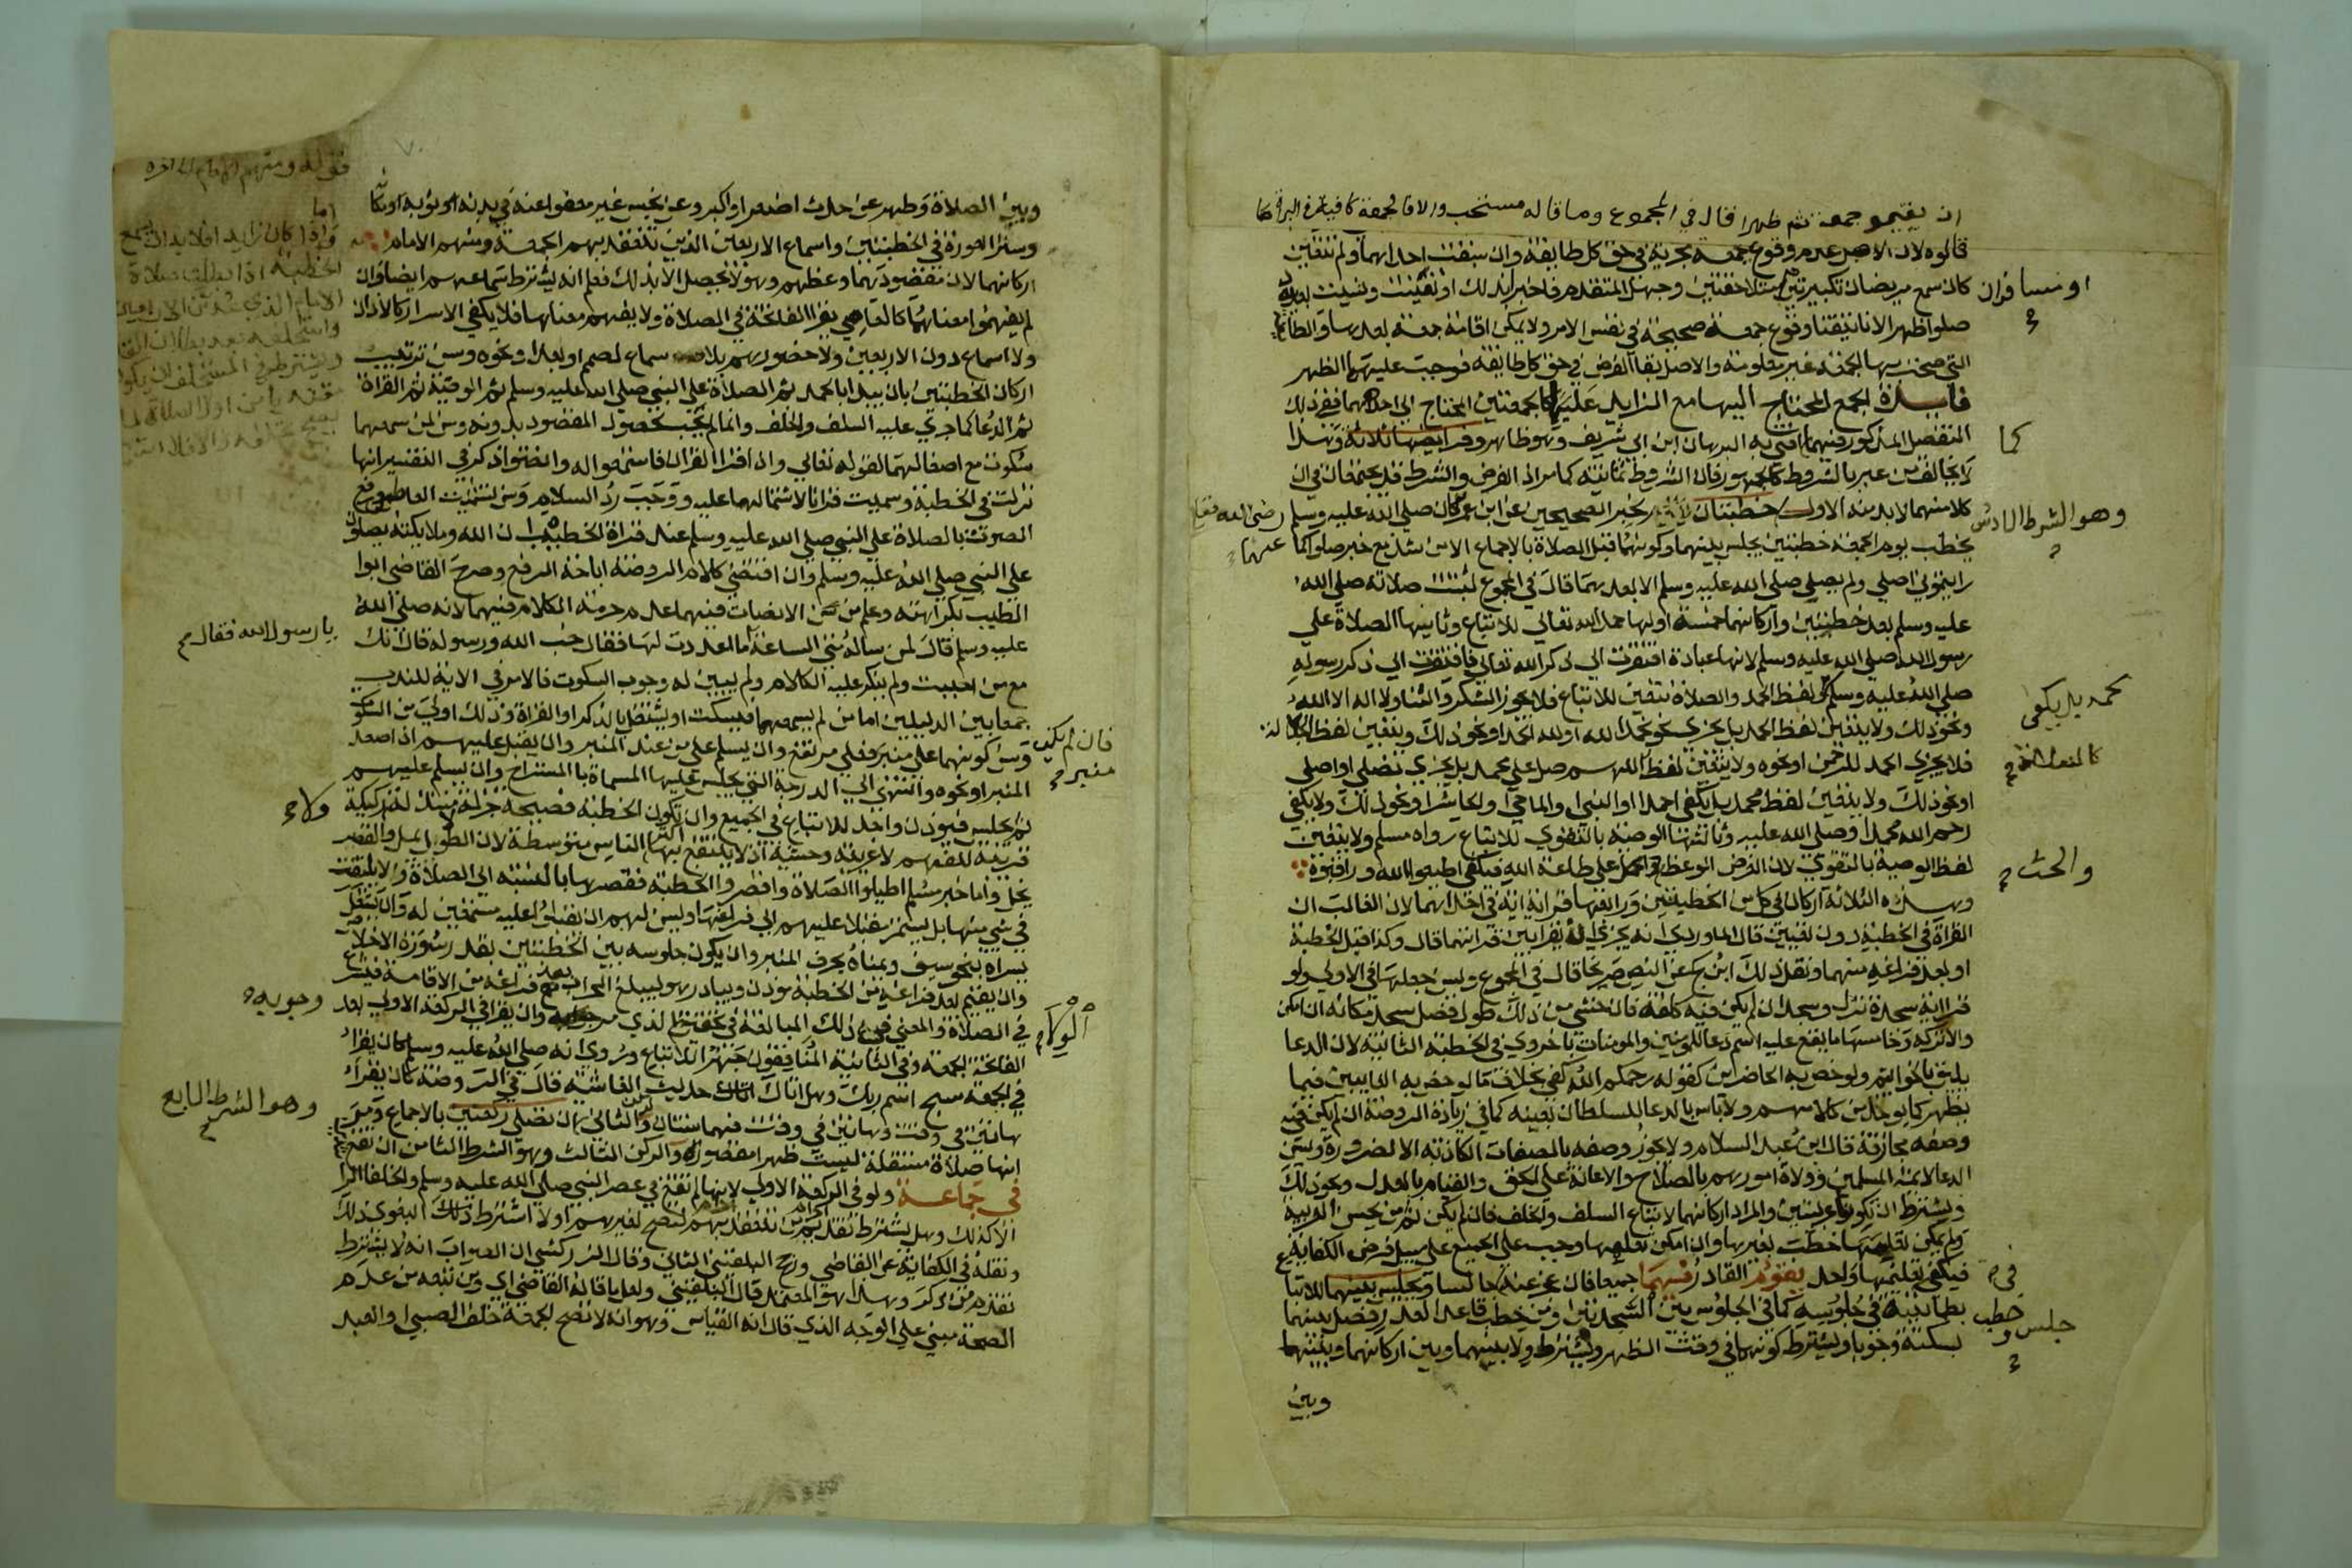 ان يقيمو جمعة ثم ظهرا قال في المجموع وما قاله مستحب والا فالجمعة كافية في البراة كما
قالوه لان الاصل عدم وقوع جمعة مجزية في حق كل طايفة وان سبقت احداهما ولم تتعين
كان سمع مريضان تكبيرتين متلاحقتين وجهل المتقدم فاخبرا بذلك او تعينت ونسيت بعده
او مسافران
صلوا ظهرا لانا تيقنا وقوع جمعة صحيحة في نفس الامر ولا يمكن اقامة جمعة بعدها والطايفة
التي صحت بها الجمعة غير معلومة والاصل بقا الفرض في حق كل طايفة فوجبت عليهما الظهر
فايدة الجمع المحتاج اليها مع الزايد عليها كالجمعتين المحتاج الي احداهما ففي ذلك
التفصيل المذكور فيهما افتي به البرهان ابن ابي شريف وهو ظاهر وفرايضها ثلاثة وهذا
كما
لا يخالف من عبر بالشروط كالجمهور فان الشروط ثمانية كما مر اذ الفرض والشرط قد يجتمعان في ان
كلا منهما لا بد منه الاول خطبتان لخبر الصحيحين عن ابن عمر كان صلي الله عليه وسلم
وهو الشرط السادس
رضى الله تعالى عنهما
يخطب يوم الجمعة خطبتين يجلس بينهما وكونهما قبل الصلاة بالاجماع الا من شذ مع خبر صلوا كما
رايتموني اصلي ولم يصلي صلي الله عليه وسلم الا بعدهما قال في المجموع ثبتت صلاته صلي الله
عليه وسلم بعد خطبتين واركانهما خمسة اولها حمد الله تعالي للاتباع وثانيها الصلاة علي
رسول الله صلي الله عليه وسلم لانها عبادة افتقرت الي ذكر الله تعالي فافتقرت الي ذكر رسوله
صلي الله عليه وسلم ولفظ الحمد والصلاة متعين للاتباع فلا يجوز الشكر والثنا ولا اله الا الله
ونحو ذلك ولا يتعين لفظ الحمد بل يجزي نحو نحمد الله او لله الحمد او نحو ذلك ويتعين لفظ الجلالة
بحمد بل يكفي
فلا يجزي الحمد للرحمن او نحوه ولا يتعين لفظ اللهم صل علي محمد بل يجزي نصلي او اصلي
او نحو ذلك ولا يتعين لفظ محمد بل يكفي احمد او النبي او الماحي او الحاشر او نحو ذلك ولا يكفي
رحم الله محمدا وصلي الله عليه وثالثتها الوصية بالتقوي للاتباع رواه مسلم ولا يتعين
لفظ الوصية بالتقوي لان الغرض الوعظ والحمل علي طاعة الله فيكفي اطيعوا الله وراقبوه
والحث
وهذه الثلاثة اركان في كل من الخطبتين ورابعها قراءة اية في احداهما لان الغالب ان
القراة في الخطبة دون تعيين قال الماوردي انه يجزي ان يقرا بين قراتهما قال وكذا قبل الخطبة
او بعد فراغه منهما ونقل ذلك ابن كج عن النص صريحا قال في المجموع ويسن جعلها في الاولي ولو
قرا اية سجدة نزل وسجد ان لم يكن فيه كلفة فان خشي من ذلك طول فصل سجد مكانه ان امكن
والا تركه وخامسها ما يقع عليه اسم دعا للمومنين والمومنات باخروي في الخطبة الثانية لان الدعا
يليق بالخواتيم ولو خص به الحاضرين كقوله رحمكم الله كفي بخلاف ما لو خص به الغايبين فيما
يظهر كما يوخذ من كلامهم ولا باس بالدعا للسلطان بعينه كما في زيادة الروضة ان لم يكن في
وصفه مجازفة قال ابن عبد السلام ولا يجوز وصفه بالصفات الكاذبة الا لضرورة ويسن
الدعا لائمة المسلمين وولاة امورهم بالصلاح والاعانة علي الحق والقيام بالعدل ونحو ذلك
ويشترط ان يكونا عربيتين والمراد اركانهما لاتباع السلف والخلف فان لم يكن ثم من يحسن العربية
ولم يمكن تعلمها خطب بغيرها وان امكن تعلمها وجب علي الجميع علي سبيل فرض الكفاية
فيكفي تعليمها واحد يقوم القادر فيهما جميعا فان عجز عنه جالسا ويجلس بينهما للاتباع
بطمانينة في جلوسه كما في الجلوس بين السجدتين ومن خطب قاعدا لعذر فصل بينهما
خطب
جلس و
بسكتة وجوبا ويشترط كونهما في وقت الظهر ويشترط ولا بينهما وبين اركانهما وبينهما
وبين
وبين الصلاة وطهر عن حدث اصغر او اكبر وعن نجس غير معفو عنه في بدنه او ثوبه او مكانه
وستر العورة في الخطبتين واسماع الاربعين الذين تنعقد بهم الجمعة ومنهم الامام
اركانهما لان مقصودهما وعظهم وهو لا يحصل الا بذلك فعلم انه يشترط سماعهم ايضا وان
لم يفهموا معناهما كالعامي يقرا الفاتحة في الصلاة ولا يفهم معناها فلا يكفي الاسرار كالاذان
ولا اسماع دون الاربعين ولا حضورهم بلا سماع لصمم او بعد او نحوه وسن ترتيب
اركان الخطبتين بان يبدا بالحمد ثم الصلاة علي النبي صلي الله عليه وسلم ثم الوصية ثم القراة
ثم الدعا كما جري عليه السلف والخلف وانما لم يجب لحصول المقصود بدونه وسن لمن سمعهما
سكوت مع اصغا لهما لقوله تعالي واذا قري القران فاستمعوا له وانصتوا ذكر في التفسير انها
نزلت في الخطبة وسميت قرانا لاشتمالهما عليه ووجب رد السلام وسن تشميت العاطس ورفع
الصوت بالصلاة علي النبي صلي الله عليه وسلم عند قراة الخطيب ان الله وملايكته يصلون
علي النبي صلي الله عليه وسلم وان اقتضي كلام الروضة اباحة الرفع وصرح القاضي ابوا
الطيب بكراهته وعلم من سن الانصات فيهما عدم حرمة الكلام فيهما لانه صلي الله
عليه وسلم قال لمن ساله متي الساعة ما اعددت لها فقال حب الله ورسوله قال انك
يا رسول الله فقال
مع من احببت ولم ينكر عليه الكلام ولم يبين له وجوب السكوت فالامر في الاية للندب
جمعا بين الدليلين اما من لم يسمعهما فيسكت او يشتغل بالذكر او القراة وذلك اولي من السكوت
وسن كونهما علي منبر فعلي مرتفع وان يسلم علي من عند المنبر وان يقبل عليهم اذا صعد
فان لم يكن منبر
المنبر او نحوه وانتهي الي الدرجة التي يجلس عليها المسماة بالمستراح وان يسلم عليهم
ثم يجلس فيوذن واحد للاتباع في الجميع وان تكون الخطبة فصيحة جزلة لا مبتذلة ركيكة
ولا
قريبة للفهم لا غريبة وحشية اذ لا ينتفع بها اكثر الناس متوسطة لان الطول يمل والقصر
يخل واما خبر مسلم اطيلوا الصلاة واقصروا الخطبة فقصرها بالنسبة الي الصلاة وان لا يلتفت
في شي منها بل يستمر مقبلا عليهم الي فراغها ويسن لهم ان يقبلوا عليه مستمعين له وان يشغل
يسراه بنحو سيف ويمناه بحرف المنبر وان يكون جلوسه بين الخطبتين بقدر سورة الاخلاص
وان يقيم بعد فراغه من الخطبة موذن ويبادر هو ليبلغ المحراب مع فراغه من الاقامة فيشرع
في الصلاة والمعني في ذلك المبالغة في تحقيق الولاء الذي مر وان يقرا في الركعة الاولي بعد
الولاء
وجوبه
الفاتحة الجمعة وفي الثانية المنافقون جهرا للاتباع وروي انه صلي الله عليه وسلم كان يقرا
في الجمعة سبح اسم ربك وهل اتاك حديث الغاشية قال في الروضة كان يقرا
هاتين في وقت وهاتين في وقت فهما سنتان والثاني ان تصلي ركعتين بالاجماع ومر
وهو الشرط السابع
انها صلاة مستقلة ليست ظهرا مقصورة والركن الثالث وهو الشرط الثامن ان تقع
في جماعة ولو في الركعة الاولي لانها لم تقع في عصر النبي صلي الله عليه وسلم والخلفا الرا
الا كذلك وهل يشترط تقدم احرام من تنعقد بهم لتصح لغيرهم او لا اشترط ذلك البغوي
ونقله في الكفاية عن القاضي ورجح البلقيني الثاني وقال الزركشي ان الصواب انه لا يشترط
تقدم من ذكر وهذا هو المعتمد قال البلقيني ولعل ما قاله القاضي اي ومن تبعه من عدم
الصحة مبني علي الوجه الذي قال انه القياس وهو انه لا تصح الجمعة خلف الصبي او العبد